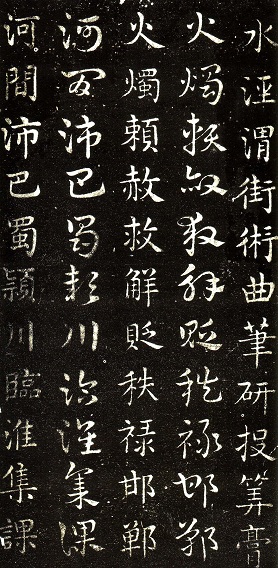 水涇渭街術曲筆研投筭膏
火燭賴赦救解貶秩禄邯鄲
火燭賴赦救解貶秩禄邯鄲
河間沛巴蜀潁川臨淮集課
河間沛巴蜀潁川臨淮集課